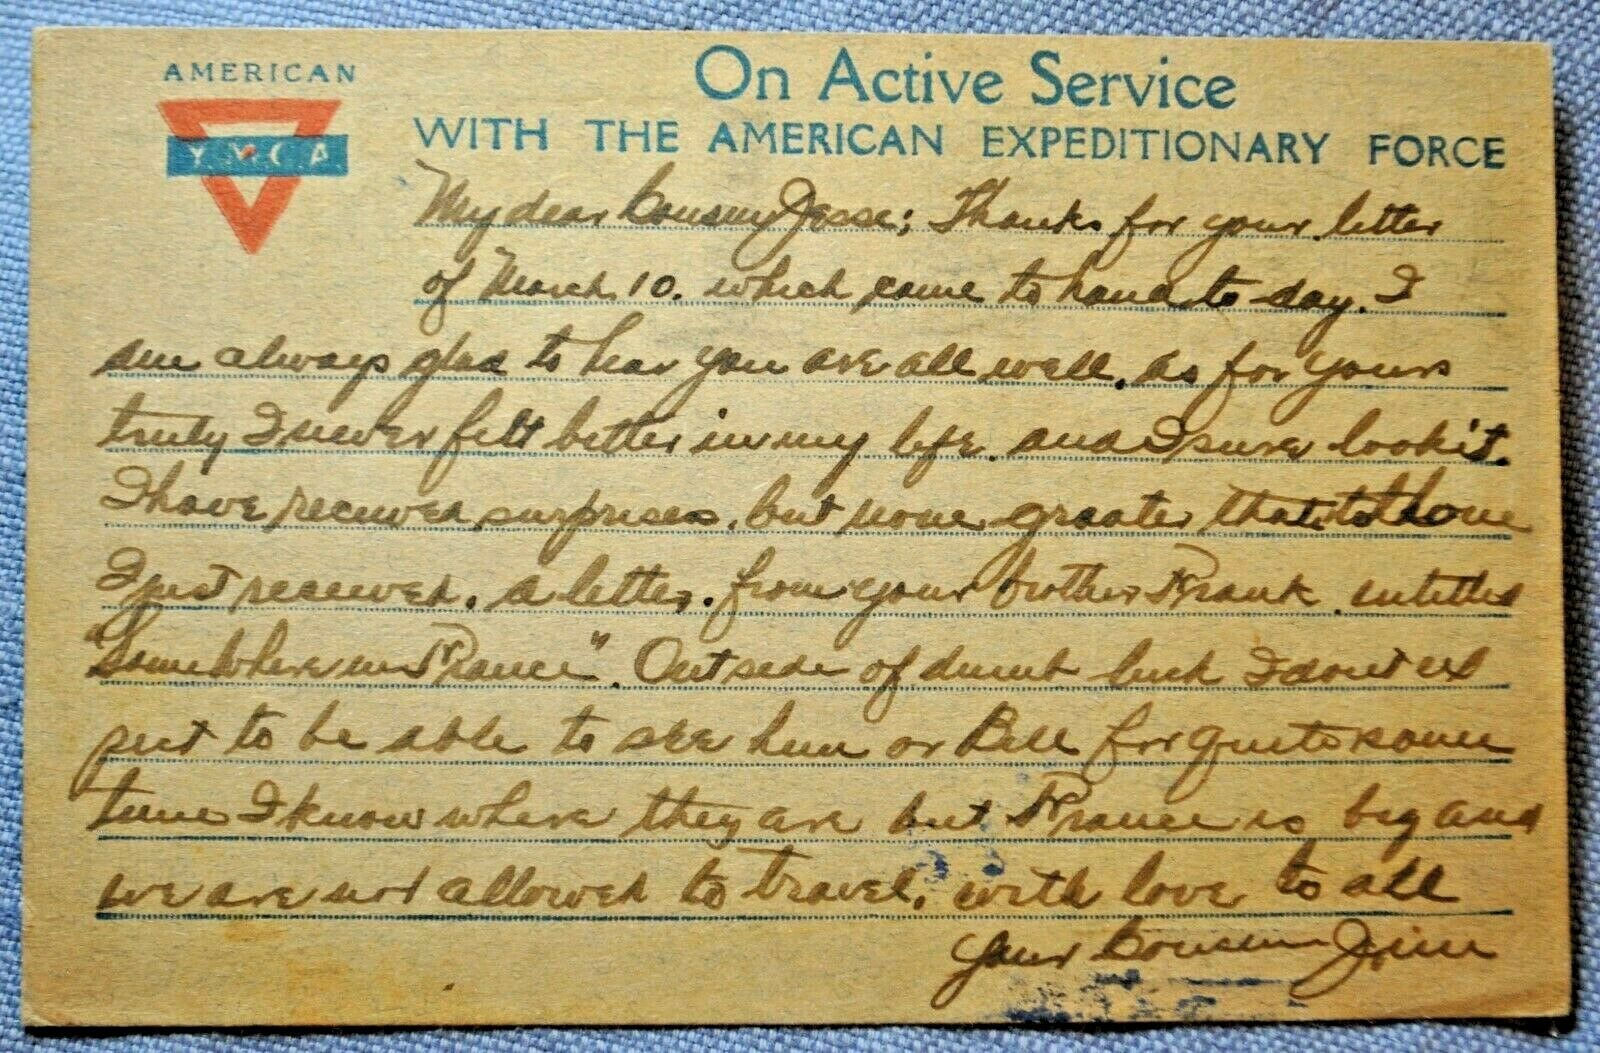 AMERICAN
Y.M.C.A
On Active Service
WITH THE AMERICAN EXPEDITIONARY FORCE
My dear Cousin Jesse; Thanks for your letter
of March 10. which came to hand to day. I
am always glad to hear you are all well. as for yours
truly I never felt better in my life. and I sure look it.
I have received surprises. but none greater than to have
I just received. a letter. from your brother Frank. entitled
"Somewhere in France". Outside of dumb luck I dont ex
pect to be able to see him or Bill for quite some
time I know where they are but France is big and
we are not allowed to travel. with love to all
your Cousin Jim